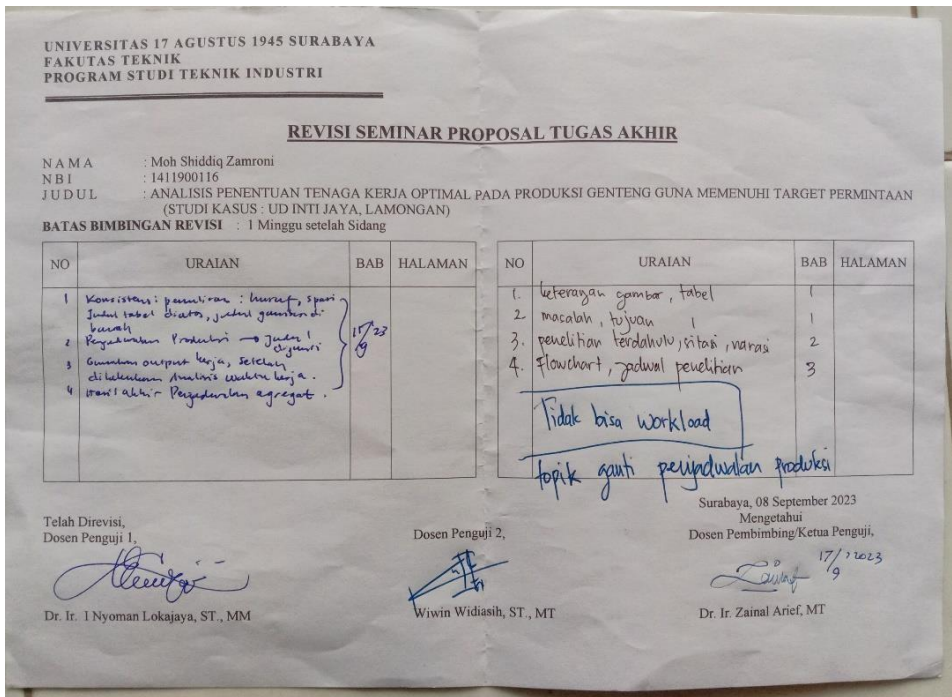 UNIVERSITAS 17 AGUSTUS 1945 SURABAYA
FAKUTAS TEKNIK
PROGRAM STUDI TEKNIK INDUSTRI
REVISI SEMINAR PROPOSAL TUGAS AKHIR
NAMA : Moh Shiddiq Zamroni
NBI : 1411900116
JUDUL : ANALISIS PENENTUAN TENAGA KERJA OPTIMAL PADA PRODUKSI GENTENG GUNA MEMENUHI TARGET PERMINTAAN
(STUDI KASUS : UD INTI JAYA, LAMONGAN)
BATAS BIMBINGAN REVISI : 1 Minggu setelah Sidang
NO URAIAN BAB HALAMAN
1 Konsistensi penulisan : huruf, spasi
Judul tabel diatas, judul gambar di
bawah
2 Penjadwalan Produksi → Judul
diganti
3 Gunakan output kerja, setelah
dilakukan Analisis waktu kerja.
4 Hasil akhir Penjadwalan agregat.
17/23
9
NO URAIAN BAB HALAMAN
1. keteragan gambar, tabel 1
2 macalah, tujuan 1
3. penelitian terdahulu, sitasi, narasi 2
4. Flowchart, jadwal penelitian 3
Tidak bisa workload
topik ganti penjadwalan produksi
Surabaya, 08 September 2023
Mengetahui
Dosen Pembimbing/Ketua Penguji,
17/9 2023
Dr. Ir. Zainal Arief, MT
Telah Direvisi,
Dosen Penguji 1,
Dr. Ir. I Nyoman Lokajaya, ST., MM
Dosen Penguji 2,
Wiwin Widiasih, ST., MT